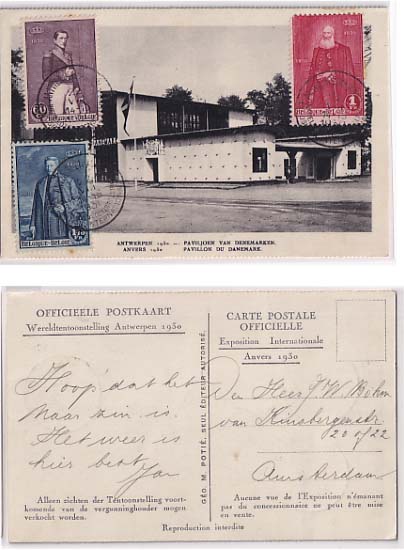 1830
60
c
BELGIQUE-BELGIË
1830
1 Fr
BELGIQUE-BELGIË
1 F 75 c
BELGIQUE-BELGIË
DANMARK
ANTWERPEN 1930 — PAVILJOEN VAN DENEMARKEN.
ANVERS 1930 PAVILLON DU DANEMARK.
OFFICIEELE POSTKAART
Wereldtentoonstelling Antwerpen 1930
Hoop dat het
naar zin is.
Het weer is
hier best
Jan
Alleen zichten der Tentoonstelling voort-
komende van de vergunninghouder mogen
verkocht worden.
GÉO. M. POTIÉ, SEUL ÉDITEUR AUTORISÉ.
CARTE POSTALE
OFFICIELLE
Exposition Internationale
Anvers 1930
Den Heer J. W. Böhm
van Kinsbergenstr.
22
Amsterdam
Aucune vue de l'Exposition n'émanant
pas du concessionnaire ne peut être mise
en vente.
Reproduction interdite